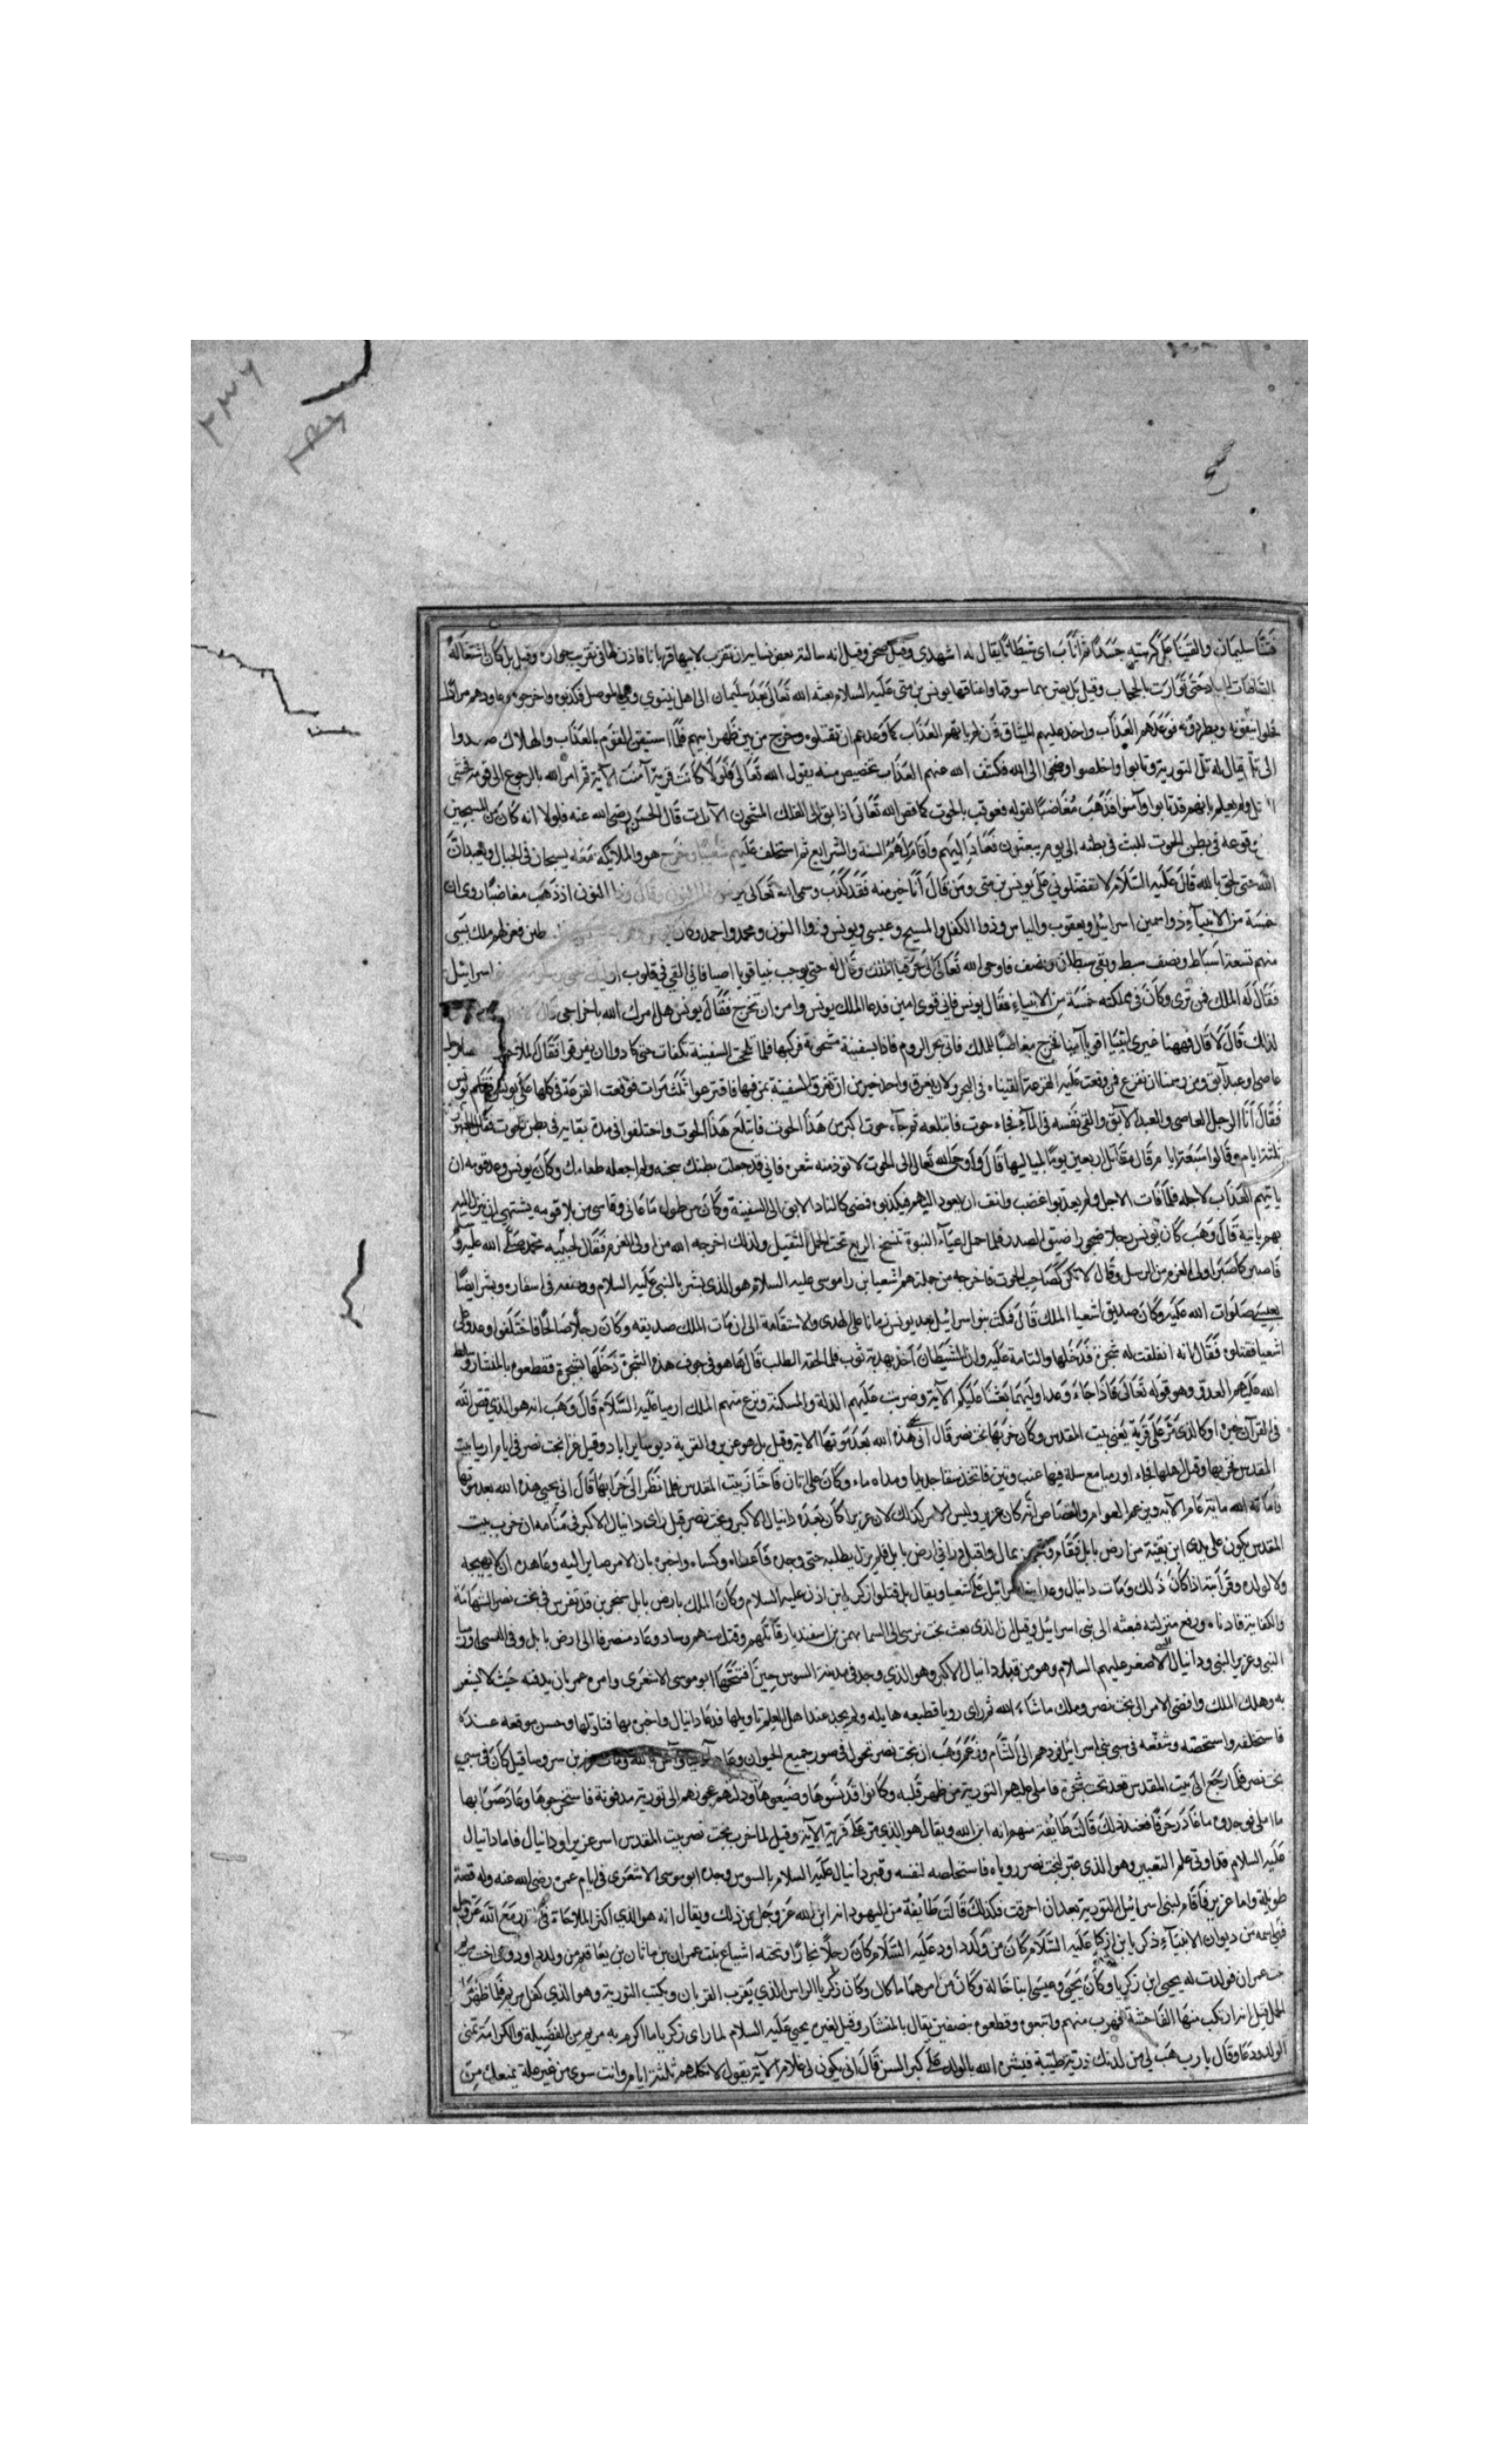 فتنا سليمان والقينا على كرسيه جسدا ثم اناب اى شيطانا يقال له اشهدى وقيل صخر وقيل انه سالته بعض نسايه ان تقرب لابيها قربانا فاذن لها فى تقريب جراده وقيل بل كان اشتغاله
حتى توارت بالحجاب وقيل بل يضربهما سوقها واعناقها يونس بن متى عليه السلام بعثه الله تعالى بعد سليمان الى اهل نينوى وهى الموصل فكذبوه واخرجوه وعاودهم مرارا
فوعدهم العذاب واخذ عليهم الميثاق ان لم ياتهم العذاب كما وعدهم ان تقتلوه وخرج من بين ظهرانيهم فلما استيقن القوم بالعذاب والهلاك صعدوا
الى تل يقال له تل التوبة وتابوا واخلصوا وضجوا الى الله فكشف الله عنهم العذاب تخصيص منه يقول الله تعالى فلولا كانت قرية آمنت الآية ثم امر الله بالرجوع الى قومه
ولم يعلم بانهم قد تابوا وآمنوا فذهب مغاضبا لقوله فعوقب بالحوت كما قص الله تعالى اذ ابق الى الفلك المشحون الآيات قال الحسن رضى الله عنه فلولا انه كان من المسبحين
وقوعه فى بطن الحوت للبث فى بطنه الى يوم يبعثون فعاد اليهم واقام لهم السنة والشرايع ثم استخلف عليهم شعيا وخرج هو والملك معه يسيحان فى الجبال ويعبدان
الله حتى لحق بالله قال عليه السلام لا تفضلونى على يونس بن متى ومن قال انا خير منه فقد كذب وسماه الله تعالى النون اذ ذهب مغاضبا روى ان
خمسة من الانبياء ذوا سمين اسرائيل ويعقوب والياس وذوا الكفل والمسيح وعيسى ويونس وذوا النون ومحمد واحمد وكان فلسطين فغزاهم ملك بسبى
منهم تسعة اسباط ونصف سبط وبقى سبطان ونصف فاوحى الله تعالى الى حزقيا الملك وقال له حتى يوجه نبيا قويا امينا فانى القى فى قلوب اوليك اسرائيل
فقال له الملك فمن ترى وكان فى مملكته خمسة من الانبياء فقال يونس فانى قوى امين فدعا الملك يونس وامره ان تخرج فقال يونس هل امرك الله باخراجى قال
لذلك قال لا قال فههنا غيرى انبياء اقويا امينا فخرج مغاضبا للملك فاتى بحر الروم فاذا بسفينة مشحونة فركبها فلما تلججت السفينة تكفات حتى كادوا ان يغرقوا فقال الملاحون
عاصى او عبد آبق ومن رسمنا ان نقترع فمن وقعت عليه القرعة القيناه فى البحر ولان يغرق واحد خير من ان تغرق السفينة بمن فيها فاقترعوا ثلث مرات فوقعت القرعة فى كلها على يونس فقام يونس
فقال انا الرجل العاصى والعبد الآبق والقى نفسه فى الماء فجاء حوت فابتلعه ثم جاء حوت اكبر من هذا الحوت فابتلع هذا الحوت واختلفوا فى مدة بقايه فى بطن الحوت فقال
ثلثة ايام وقالوا سبعة ايام وقال مقاتل اربعين يوما بلياليها قال واوحى الله تعالى الى الحوت لا توذ منه شعرة فانى قد جعلت بطنك سجنه ولم اجعله طعامك وكان يونس وعد قومه ان
ياتيهم العذاب لاجله فلما فات الاجل ولم يعذبوا غضب وانف ان يعود اليهم فيكذبوه فمضى كالناد الابق الى السفينة وكان من طول ما عانى وقاسى من بلاء قومه يشتهى ان ينزل الله
بهم بايتية قال وهب كان يونس رجلا ضجرا ضيق الصدر فلما حمل اعباء النبوة تفسخ الربع تحت الحمل الثقيل ولذلك اخرجه الله من اولى العزم فقال لحبيبه محمد صلى الله عليه وآله
فاصبر كما صبر اولى العزم من الرسل وقال لا تكن كصاحب الحوت فاخرجه من جملتهم اشعيا بن راموسى عليه السلام هو الذى بشر بالنبى عليه السلام ووصفه فى اسفاره وبشر ايضا
بعيسى صلوات الله عليه وكان صديق اشعيا الملك قال فمكث بنوا اسرائيل بعد يونس زمانا على الهدى والاستقامة الى ان مات الملك صديقه وكان رجلا صالحا فاختلفوا وعدوا على
اشعيا فقتلوه فقال انه انفلقت له شجرة فدخلها والتامة عليه وان الشيطان اخذ بهدبة ثوبه فلما لحقه الطلب قال لها هو فى جوف هذه الشجرة دخلها بسحره فقطعوه بالمنشار وسلط
الله عليهم العدو وهو قوله تعالى فاذا جاء وعد اوليهما بعثنا عليكم الآية وضربت عليهم الذلة والمسكنة ونزع منهم الملك ارميا عليه السلام قال وهب انه هو الذى قص الله
فى القرآن خبره او كالذى مر على قرية يعنى بيت المقدس وكان خربها بخت نصر قال انى يحيى هذه الله بعد موتها الاية وقيل بل هو عزير والقرية دير ساير اباد وقيل غزا بخت نصر فى ايام ارميا بيت
المقدس فخربها وقتل اهلها فجاء اورميا مع سلة فيها عنب وتين فاتخذ سقا جديدا ومداه ماء وكان على اتان فاجتاز بيت المقدس فلما نظر الى خرابها قال انى يحيى هذه الله بعد موتها
فاماته الله ماية عام الآية وزعم العوام والقصاص انه كان عزير وليس الامر كذلك لان عزيرا كان بعده دانيال الاكبر وبخت نصر قيل راى دانيال الاكبر فى منامه ان خرب بيت
المقدس يكون على يدى ابن يقنة من ارض بابل فقام وتجهز بمال واقبل وافى ارض بابل فلم يزل يطلبه حتى وجده فاعطاه وكساه واخبره بان الامر صاير اليه وعاهده ان لا يهيجه
ولا لولده وقرابته اذا كان ذلك ومات دانيال وعدا بنوا اسرائيل على شعيا ويقال بل قتلوا زكريا بن اذن عليه السلام وكان الملك بارض بابل سنحريب قد تفرس فى بخت نصر الشهامة
والكفاية فادناه ورفع منزلته فبعثه الى بنى اسرائيل وقيل ان الذى بعث بخت نرسى الى الشام بهمن بن اسفنديار فقاتلهم وقتل منهم وساد وعاد منصرفا الى ارض بابل وفى السبى اورميا
النبى وعزير النبى ودانيال الاصغر عليهم السلام وهو من قبيلة دانيال الاكبر وهو الذى وجد فى مدينة السوس حين افتتحها ابو موسى الاشعرى وامره عمر بان يدفنه حيث لا يشعر
به وهلك الملك وافضى الامر الى بخت نصر وملك ماشاء الله ثم راى رويا فظيعه هايله ولم يجد عند اهل العلم تاويلها فدعا دانيال واخبره بها فتاولها وحسن موقعه عنده
فاستخلفه واستخصه وشفعه فى سبى بنى اسرائيل فردهم الى الشام وزعم وهب ان بخت نصر تحول فى صور جميع الحيوان وعاد عزير بن سروسا قيل كان فى سبى
بخت نصر فلما رجع الى بيت المقدس قعد تحت شجرة فاملى عليهم التورية من ظهر قلبه وكانوا قد نسوها وضيعوها ودلهم عزير الى تورية مدفونة فاستخرجوها وعارضوها
ما املى فوجدوه ما غادر حرفا فعند ذلك قالت طايفة منهم انه ابن الله ويقال هو الذى مر على قرية الآية وقيل لما خرب بخت نصر بيت المقدس اسر عزير او دانيال فاما دانيال
عليه السلام فقد اوتى علم التعبير وهو الذى عبر لبخت نصر روياه فاستخلصه لنفسه وقبر دانيال عليه السلام بالسوس وجده ابو موسى الاشعرى فى ايام عمر رضى الله عنه وله قصة
طويلة واما عزير فاقام لبنى اسرائيل التورية بعد ان احرقت فكذلك قالت طايفة من اليهود انه ابن الله عز وجل عن ذلك ويقال انه هو الذى اكثر المناجاة الله عز وجل
فمحى اسمه من ديوان الانبياء ذكر يا بن اذكيا عليه السلام كان من ولد داود عليه السلام كان رجلا نجارا وتحته اشياع بنت عمران بن ماثان بن يعاقيم من ولد داود وهى اخت مريم
بنت عمران فولدت له يحيى ابن زكريا وكان يحيى وعيسى ابنا خالة وكان من امرهما ما كان وكان زكريا الراس الذى يقرب القربان ويكتب التورية وهو الذى كفل مريم فلما ظهر
الحمل قيل انه ارتكب منها الفاحشة فهرب منهم واتبعوه وقطعوه بنصفين يقال بالمنشار وقيل لغيره يحيى عليه السلام لما راى زكريا ما اكرم به مريم من الفضيلة والكرامة تمنى
الولد ودعا وقال يا رب هب لى من لدنك ذرية طيبة فبشره الله بالولد على كبر السن قال انى يكون لى غلام الآية يقول لا تكلمهم ثلثة ايام وانت سوى من غير علة يمنعك من